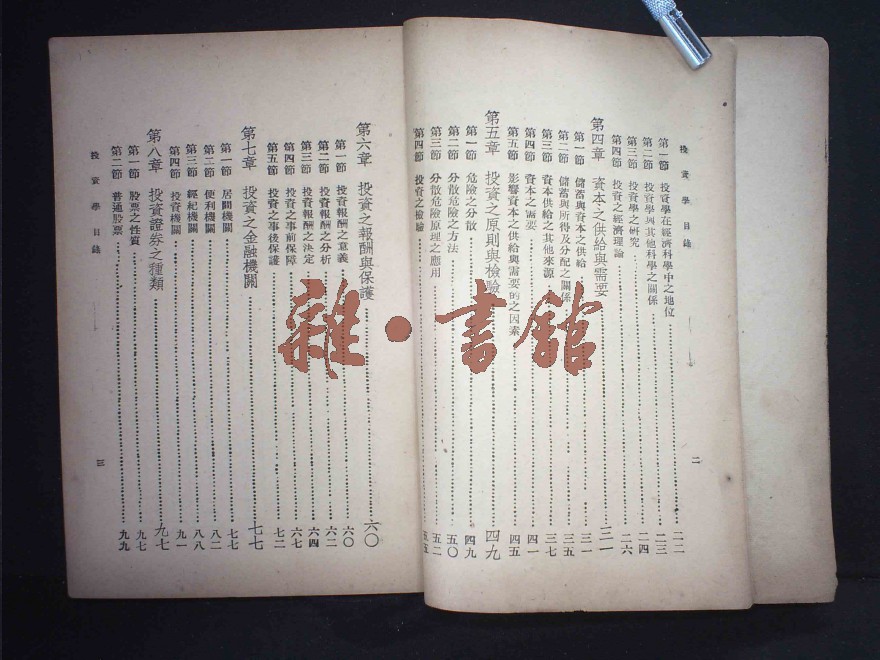 投資學目錄
第一節 投資學在經濟科學中之地位 二二
第二節 投資學與其他科學之關係 二三
第三節 投資學之研究 二四
第四節 投資之經濟理論 二六
第四章 資本之供給與需要 三一
第一節 儲蓄與資本之供給 三一
第二節 儲蓄與所得及分配之關係 三五
第三節 資本供給之其他來源 三七
第四節 資本之需要 四一
第五節 影響資本之供給與需要的之因素 四五
第五章 投資之原則與檢驗 四九
第一節 危險之分散 四九
第二節 分散危險之方法 五〇
第三節 分散危險原理之應用 五二
第四節 投資之檢驗 五五
二
第六章 投資之報酬與保護 六〇
第一節 投資報酬之意義 六〇
第二節 投資報酬之分析 六二
第三節 投資報酬之決定 六四
第四節 投資之事前保障 六七
第五節 投資之事後保護 七二
第七章 投資之金融機關 七七
第一節 居間機關 七七
第二節 便利機關 八二
第三節 經紀機關 八八
第四節 投資機關 九一
第八章 投資證券之種類 九七
第一節 股票之性質 九七
第二節 普通股票 九九
投資學目錄
三
雜·書館